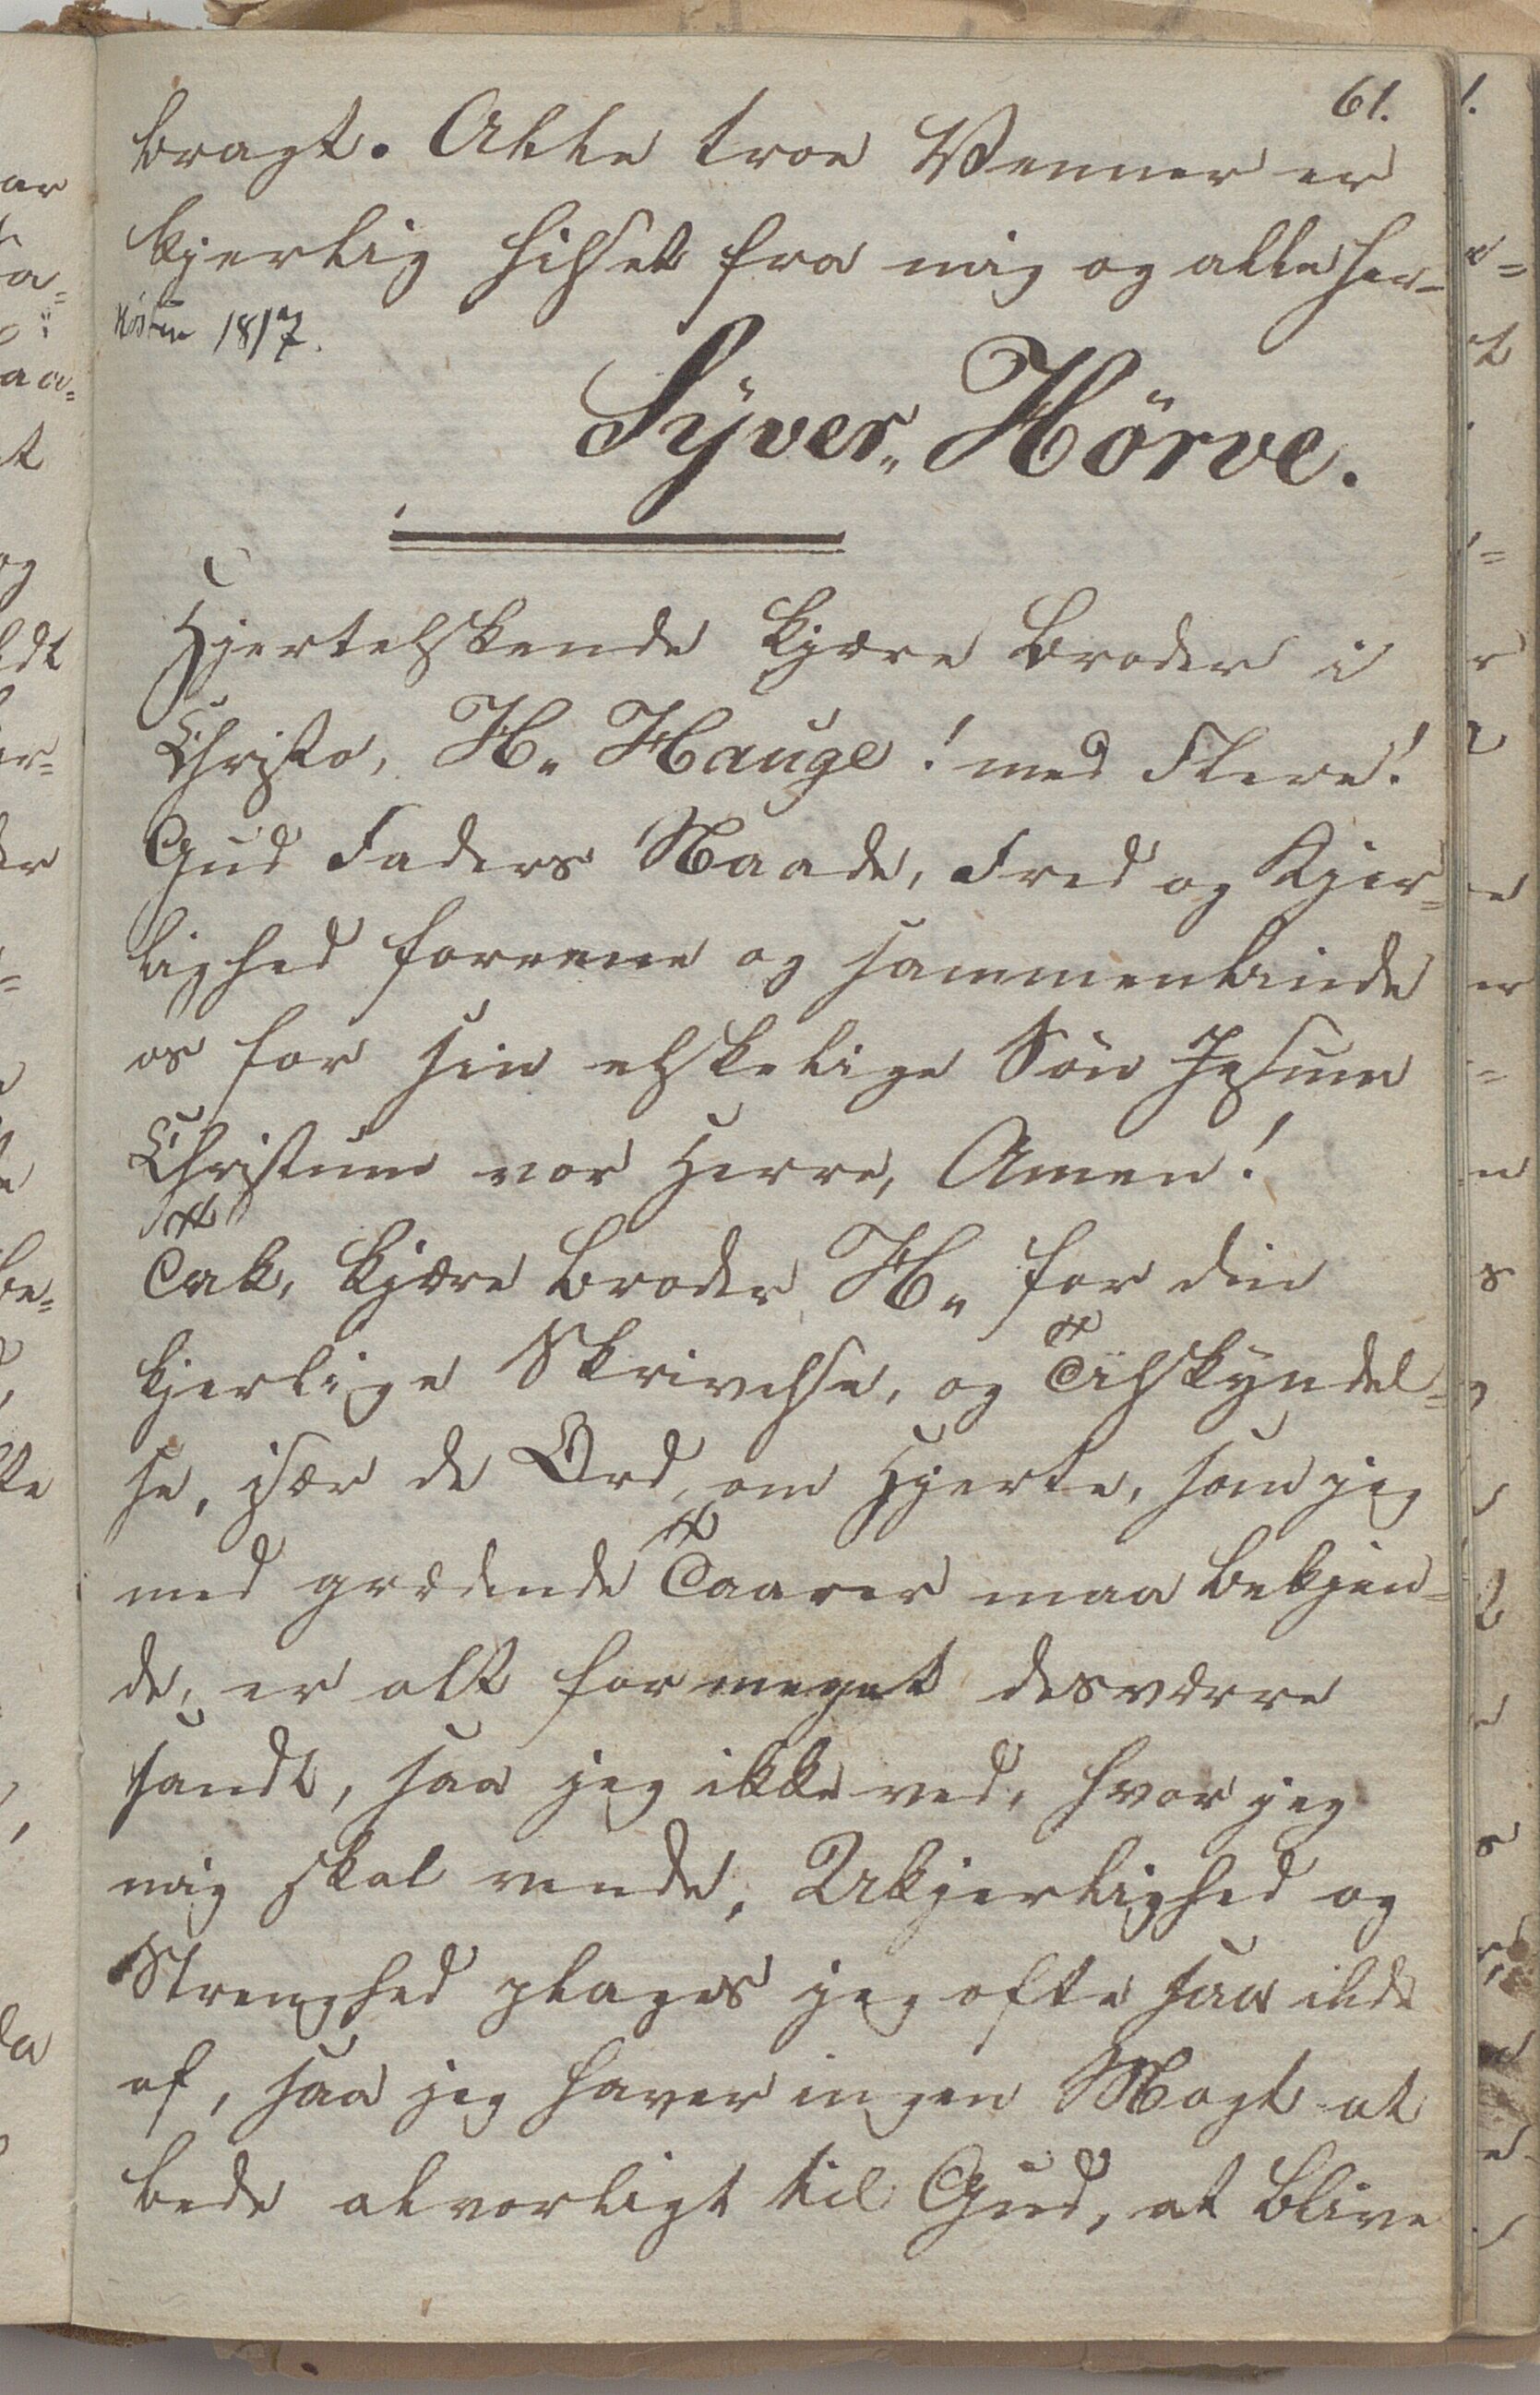 61.
bragt. Alle troe Venner er
kjerlig hilset fra mig og alle her-
Høsten 1817.
Syver„ Hörve.
Hjertelskende kjære Broder i
Christo, H„ Hauge! med Flere!
Gud Faders Naade, Fred og Kjer=
lighed foreene og sammenbinde
os for sin elskelige Søn Jesum
Christum vor Herre, Amen!
Tak, kjære Broder H„ for din
kjerlige Skrivelse, og Tilskyndel=
se, især de Ord, om Hjerte, som jeg
med grædende Taarer maa bekjen=
de, er alt for meget desværre
sandt, saa jeg ikke ved, hvor jeg
mig skal vende, Ukjerlighed og
Strenghed plages jeg ofte saa ilde
af, saa jeg haver ingen Magt at
bede alvorligt til Gud, at blive